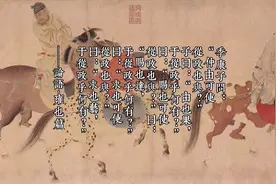 季康子問：
“仲由可使
從政也與？”
子曰：“由也果，
于從政乎何有？”
曰：“賜也可使
從政也與？”曰：
“賜也達，
于從政乎何有？”
曰：“求也可使
從政也與？”
曰：“求也藝，
于從政乎何有？”
——論語·雍也篇